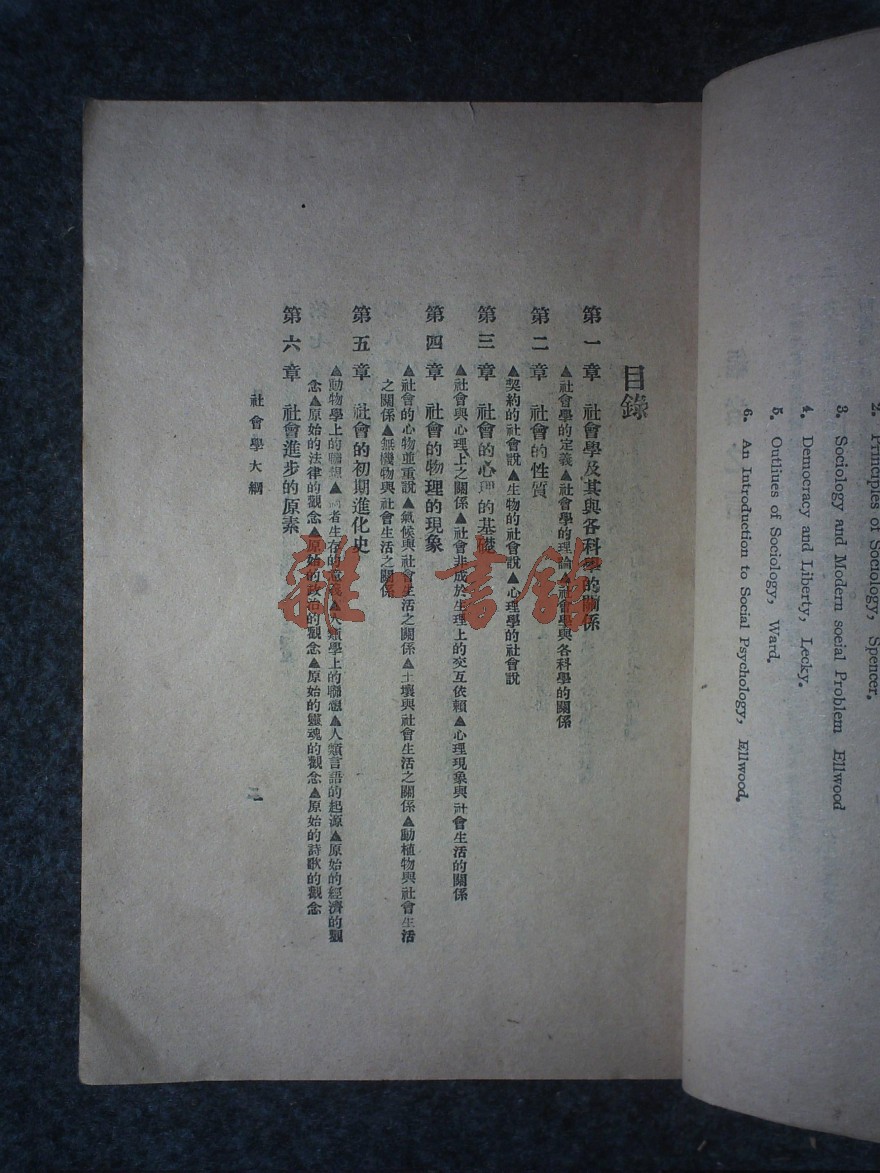 2. Principles of Sociology, Spencer.
3. Sociology and Modern social Problem Ellwood
4. Democracy and Liberty, Lecky.
5. Outlines of Sociology, Ward.
6. An Introduction to Social Psychology, Ellwood.
目錄
第一章 社會學及其與各科學的關係
▲社會學的定義▲社會學的理論▲社會學與各科學的關係
第二章 社會的性質
▲契約的社會說▲生物的社會說▲心理學的社會說
第三章 社會的心理的基礎
▲社會與心理上之關係▲社會非成於生理上的交互依賴▲心理現象與社會生活的關係
第四章 社會的物理的現象
▲社會的心物並重說▲氣候與社會生活之關係▲土壤與社會生活之關係▲動植物與社會生活
之關係▲無機物與社會生活之關係
第五章 社會的初期進化史
▲動物學上的聯想▲者生存的意義▲人類學上的聯想▲人類言語的起源▲原始的經濟的觀
念▲原始的法律的觀念▲原始的政治的觀念▲原始的靈魂的觀念▲原始的詩歌的觀念
第六章 社會進步的原素
社會學大綱
雜·書館